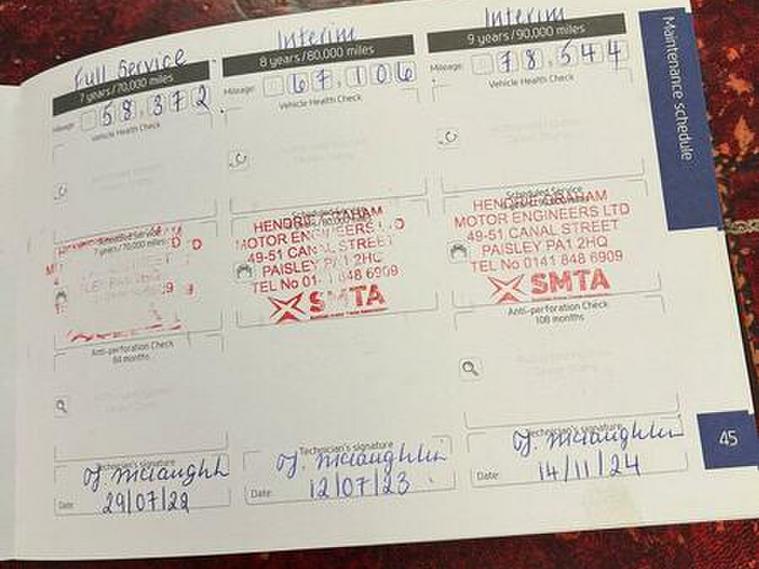 Full Service
7 years/70,000 miles
Mileage: 58,372
Vehicle Health Check
Scheduled Service
7 years/70,000 miles
Anti-perforation Check
84 months
Technician's signature
J. McLaughlin
Date: 29/07/22
Interim
8 years/80,000 miles
Mileage: 67,106
Vehicle Health Check
Scheduled Service
HENDRY GRAHAM
MOTOR ENGINEERS LTD
49-51 CANAL STREET
PAISLEY PA1 2HQ
TEL No 0141 848 6909
SMTA
Technician's signature
J. McLaughlin
Date: 12/07/23
Interim
9 years/90,000 miles
Mileage: 78,544
Vehicle Health Check
Scheduled Service
HENDRY GRAHAM
MOTOR ENGINEERS LTD
49-51 CANAL STREET
PAISLEY PA1 2HQ
TEL No 0141 848 6909
SMTA
Anti-perforation Check
108 months
Technician's signature
J. McLaughlin
Date: 14/11/24
Maintenance schedule
45